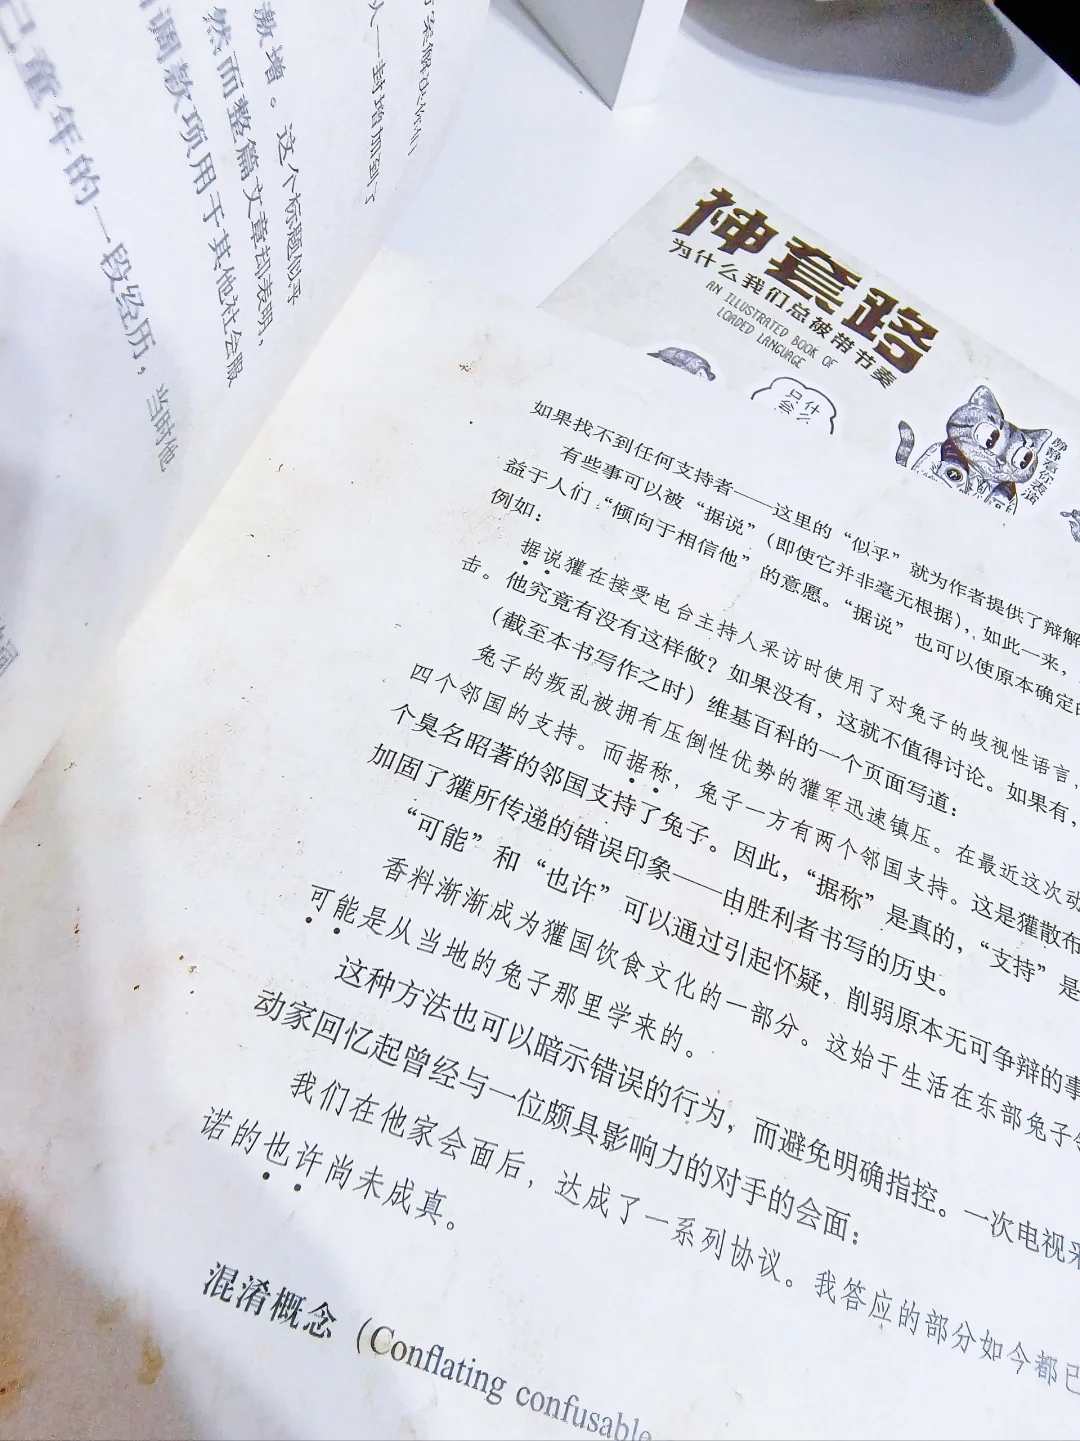 激增。这个标题似乎
然而整篇文章却表明，
调款项用于其他社会服
己童年的一段经历，当时他
神套路
为什么我们总被带节奏
AN ILLUSTRATED BOOK OF
LOADED LANGUAGE
静静看你表演
如果找不到任何支持者——这里的“似乎”就为作者提供了辩解
有些事可以被“据说”（即使它并非毫无根据），如此一来，
益于人们“倾向于相信他”的意愿。“据说”也可以使原本确定的
例如：
据说獾在接受电台主持人采访时使用了对兔子的歧视性语言，
击。他究竟有没有这样做？如果没有，这就不值得讨论。如果有，
（截至本书写作之时）维基百科的一个页面写道：
兔子的叛乱被拥有压倒性优势的獾军迅速镇压。在最近这次动
四个邻国的支持。而据称，兔子一方有两个邻国支持。这是獾散布
个臭名昭著的邻国支持了兔子。因此，“据称”是真的，“支持”是
加固了獾所传递的错误印象——由胜利者书写的历史。
“可能”和“也许”可以通过引起怀疑，削弱原本无可争辩的事
香料渐渐成为獾国饮食文化的一部分。这始于生活在东部兔子
可能是从当地的兔子那里学来的。
这种方法也可以暗示错误的行为，而避免明确指控。一次电视采
动家回忆起曾经与一位颇具影响力的对手的会面：
我们在他家会面后，达成了一系列协议。我答应的部分如今都已
诺的也许尚未成真。
混淆概念（Conflating confusable